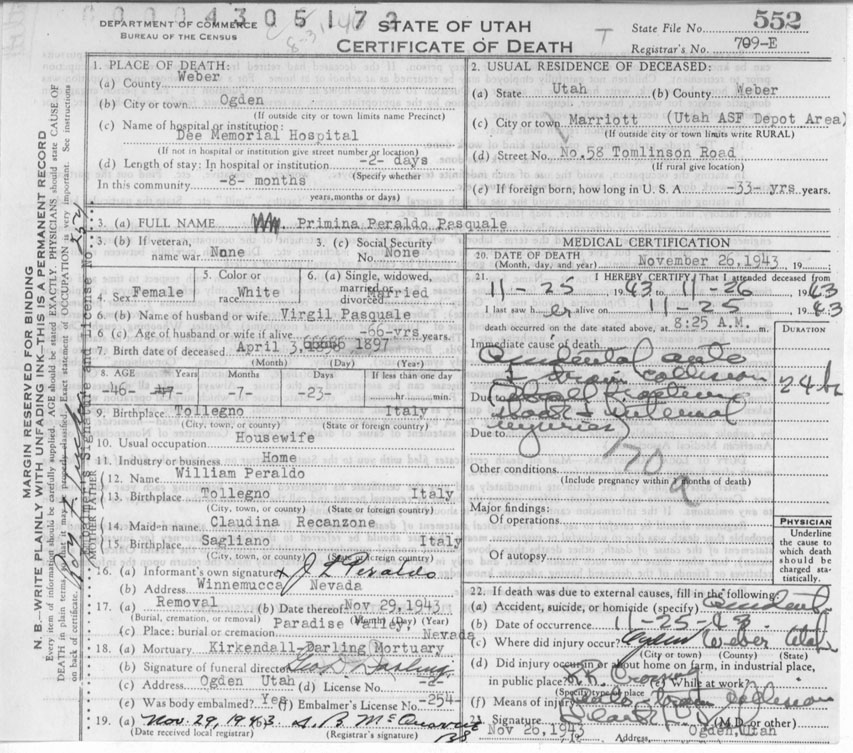 0 0 0 0 4 3 0 5 1 7 2
DEPARTMENT OF COMMERCE
BUREAU OF THE CENSUS
STATE OF UTAH
CERTIFICATE OF DEATH
T
State File No. 552
Registrar's No. 709-E
MARGIN RESERVED FOR BINDING
N. B.—WRITE PLAINLY WITH UNFADING INK—THIS IS A PERMANENT RECORD
Every item of information should be carefully supplied. AGE should be stated EXACTLY. PHYSICIANS should state CAUSE OF
DEATH in plain terms, so that it may be properly classified. Exact statement of OCCUPATION is very important. See instructions
on back of certificate.
Embalmer's Signature and License No. 254
1. PLACE OF DEATH:
(a) County Weber
(b) City or town Ogden
(If outside city or town limits name Precinct)
(c) Name of hospital or institution:
Dee Memorial Hospital
(If not in hospital or institution give street number or location)
(d) Length of stay: In hospital or institution -2- days
(Specify whether
In this community -8- months
years, months or days)
2. USUAL RESIDENCE OF DECEASED:
(a) State Utah (b) County Weber
(c) City or town Marriott (Utah ASF Depot Area)
(If outside city or town limits write RURAL)
(d) Street No. No.58 Tomlinson Road
(If rural give location)
(e) If foreign born, how long in U. S. A. -33- yrs years.
3. (a) FULL NAME Primina Peraldo Pasquale
3. (b) If veteran, name war None
3. (c) Social Security No. None
4. Sex Female
5. Color or race White
6. (a) Single, widowed, married or divorced Married
6. (b) Name of husband or wife Virgil Pasquale
6. (c) Age of husband or wife if alive -66-yrs years
7. Birth date of deceased April 3, 1897
(Month) (Day) (Year)
8. AGE Years Months Days If less than one day
-46- -7- -23- hr. min.
9. Birthplace Tollegno Italy
(City, town, or county) (State or foreign country)
10. Usual occupation Housewife
11. Industry or business Home
FATHER
12. Name William Peraldo
13. Birthplace Tollegno Italy
(City, town, or county) (State or foreign country)
MOTHER
14. Maiden name Claudina Recanzone
15. Birthplace Sagliano Italy
(City, town, or county) (State or foreign country)
16. (a) Informant's own signature x J L Peraldo
(b) Address Winnemucca Nevada
17. (a) Removal (b) Date thereof Nov 29,1943
(Burial, cremation, or removal) (Month) (Day) (Year)
(c) Place: burial or cremation Paradise Valley, Nevada
18. (a) Mortuary Kirkendall-Darling Mortuary
(b) Signature of funeral director Geo D Darling
(c) Address Ogden Utah (d) License No.
(e) Was body embalmed? Yes (f) Embalmer's License No. -254-
19. (a) Nov. 29, 1943
(Date received local registrar) (Registrar's signature)
MEDICAL CERTIFICATION
20. DATE OF DEATH November 26,1943, 19
(Month, day, and year)
21. I HEREBY CERTIFY That I attended deceased from
11-25, 1943 to 11-26, 1943
I last saw h er alive on 11-25, 1943
death occurred on the date stated above, at 8:25 A.M. m.
DURATION
Immediate cause of death
Accidental auto
& train collision
24 h
Due to
shock & internal
injuries
Due to
170 a
Other conditions
(Include pregnancy within 3 months of death)
Major findings:
Of operations
Of autopsy
PHYSICIAN
Underline the cause to which death should be charged statistically.
22. If death was due to external causes, fill in the following:
(a) Accident, suicide, or homicide (specify) Accident
(b) Date of occurrence 11-25-43
(c) Where did injury occur? Ogden Weber Utah
(City or town) (County) (State)
(d) Did injury occur in or about home on farm, in industrial place,
in public place?
(Specify type of place) (e) While at work?
(f) Means of injury collision
Signature (M.D. or other)
Nov 26,1943 Address Ogden, Utah